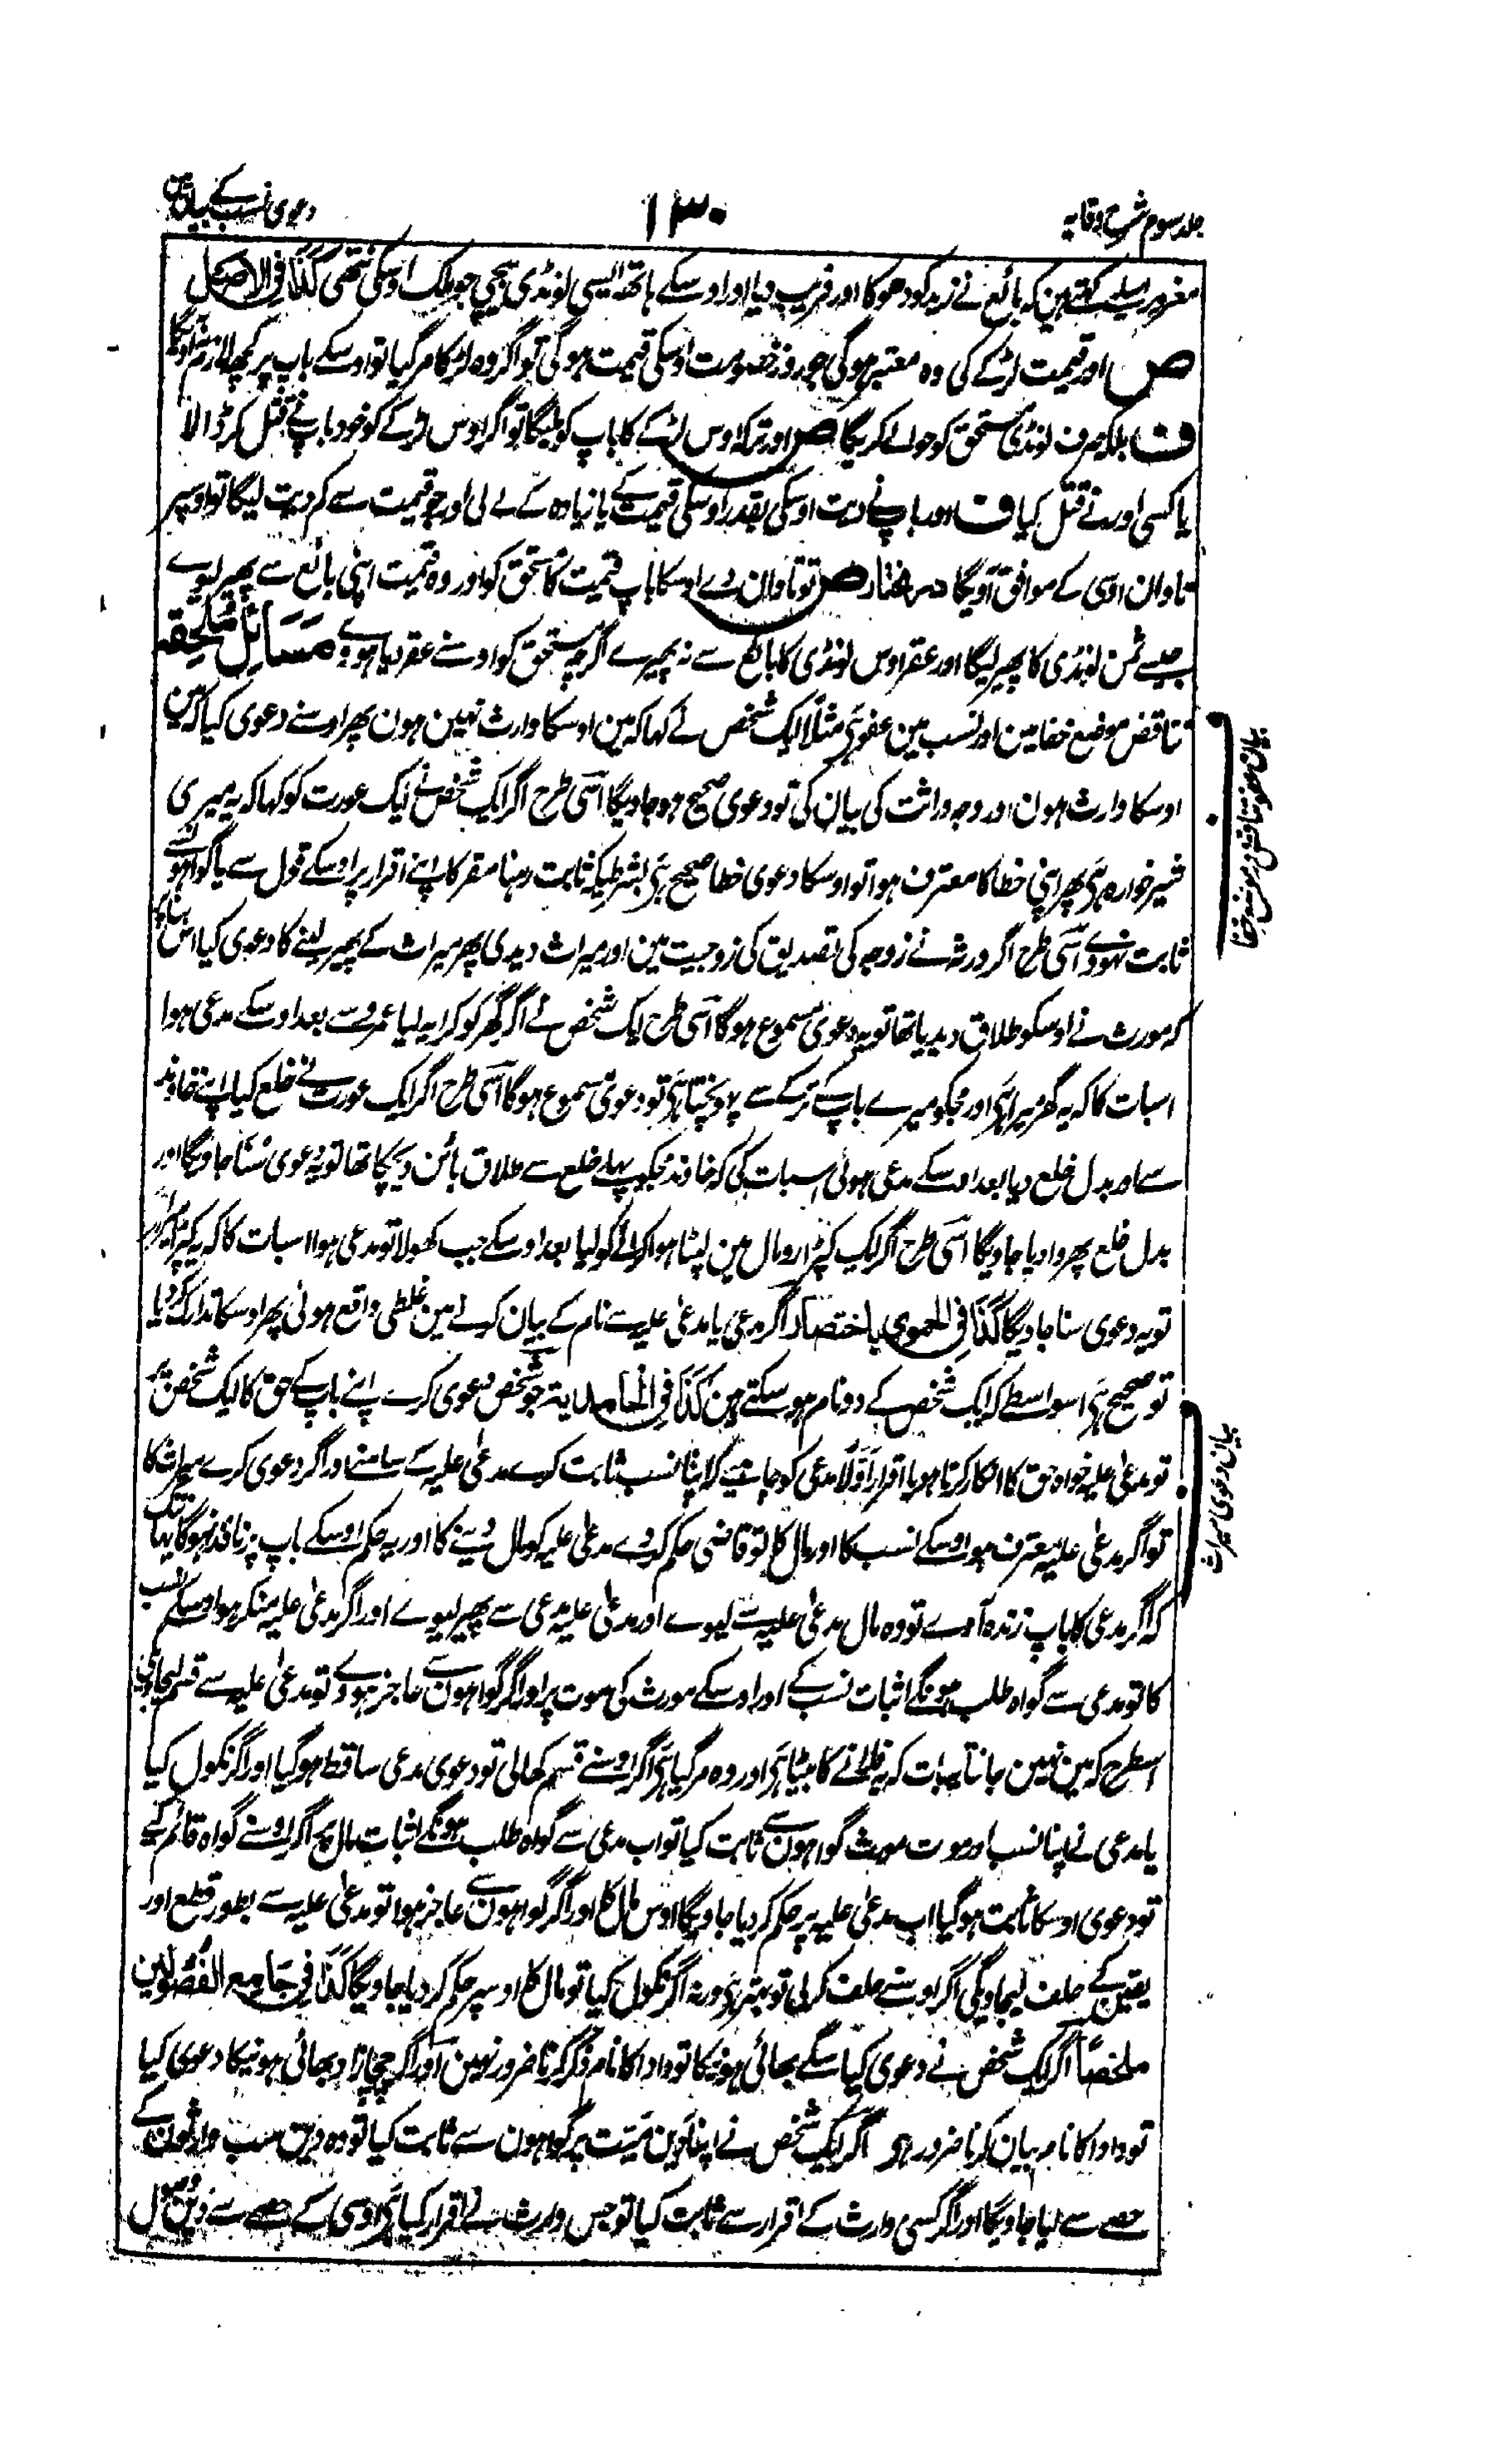 جلد سوم شرح وقایہ
۱۳۰
دعوی نسب کے بیان مین
مغرور اسلیے کہتے ہین کہ بائع نے زید کو دھوکا اور فریب دیا اور اوسکے ہاتھ ایسی لونڈی بیچی جو ملک اوسکی نتھی کَذَا فِی الاصل
ص اور قیمت لڑکے کی وہ معتبر ہوگی جو روز خصومت اوسکی قیمت ہوگی تو اگر وہ لڑکا مر گیا تو اوسکے باپ پر کچھ لازم نہ آویگا
ف بلکہ صرف لونڈی مستحق کو حوالے کریگا ص اور ترکہ اوس لڑکے کا باپ کو ملیگا تو اگر اوس لڑکے کو خود باپ نے قتل کر ڈالا
یا کسی اور نے قتل کیا ف اور باپ نے دیت اوسکی بقدر اوسکی قیمت کے یا زیادہ کے لے لی اور جو قیمت سے کم دیت لیگا تو اوسپر
تاوان اوسی کے موافق آویگا در مختار ص تو تاوان دے اوسکا باپ قیمت کا مستحق کو اور وہ قیمت اپنی بائع سے پھیر لیوے
جیسے ثمن لونڈی کا پھیر لیگا اور عقر اوس لونڈی کا بائع سے نہ پھیرے اگرچہ مستحق کو اوسنے عقر دیا ہووے مَسَائِل مُلحِقہ
تناقض موضع خفا مین اور نسب مین عفو ہی مثلاً ایک شخص نے کہا کہ مین اوسکا وارث نہین ہون پھر اوسنے دعوی کیا کہ مین
اوسکا وارث ہون اور وجہ وراثت کی بیان کی تو دعوی صحیح ہو جاویگا اسی طرح اگر ایک شخص نے ایک عورت کو کہا کہ یہ میری
شیر خوارہ ہی پھر اپنی خطا کا معترف ہوا تو اوسکا دعوی خطا صحیح ہی بشرطیکہ ثابت رہنا مقر کا اپنے اقرار پر اوسکے قول سے یا گواہون سے
ثابت نہووے اسی طرح اگر ورثہ نے زوجہ کی تصدیق کی زوجیت مین اور میراث دیدی پھر میراث کے پھیر لینے کا دعوی کیا اس بنا پر
کہ مورث نے اوسکو طلاق دیدیا تھا تو یہ دعوی مسموع ہوگا اسی طرح ایک شخص نے اگر گھر کو کرایہ لیا عمرو سے بعد اوسکے مدعی ہوا
اسبات کا کہ یہ گھر میرا ہی اور مجکو میرے باپ کے ترکے سے پہونچتا ہی تو دعوی مسموع ہوگا اسی طرح اگر ایک عورت نے خلع کیا اپنے خاوند
سے اور بدل خلع دیا بعد اوسکے مدعی ہوئی اسبات کی کہ خاوند مجکو پہلے خلع سے طلاق بائن دیچکا تھا تو یہ دعوی سنا جاویگا اور
بدل خلع پھروا دیا جاویگا اسی طرح اگر ایک کپڑا رومال مین لپٹا ہوا کرائے کو لیا بعد اوسکے جب کھولا تو مدعی ہوا اسبات کا کہ یہ کپڑا میرا ہی
تو یہ دعوی سنا جاویگا کَذَا فِی الحموی باختصار اگر مدعی یا مدعی علیہ سے نام کے بیان کرنے مین غلطی واقع ہوئی پھر اوسکا تدارک کر دیا
تو صحیح ہی اسواسطے کہ ایک شخص کے دو نام ہو سکتے ہین کَذَا فِی الحامدیۃ جو شخص دعوی کرے اپنے باپ کے حق کا ایک شخص پر
تو مدعی علیہ خواہ حق کا انکار کرتا ہو یا اقرار اولاً مدعی کو چاہیے کہ اپنا نسب ثابت کرے مدعی علیہ کے سامنے اور اگر دعوی کرے میراث کا
تو اگر مدعی علیہ معترف ہو اوسکے نسب کا اور مال کا تو قاضی حکم کر دے مدعی علیہ کو مال دینے کا اور یہ حکم اوسکے باپ پر نافذ نہوگا یہانتک
کہ اگر مدعی کا باپ زندہ آوے تو وہ مال مدعی علیہ سے لیوے اور مدعی علیہ مدعی سے پھیر لیوے اور اگر مدعی علیہ منکر ہو اوسکے نسب
کا تو مدعی سے گواہ طلب ہونگے اثبات نسب کے اور اوسکے مورث کی موت پر اور اگر گواہون سے عاجز ہووے تو مدعی علیہ سے قسم لیجاویگی
اسطرح کہ مین نہین جانتا یہ بات کہ یہ فلانے کا بیٹا ہی اور وہ مر گیا ہی اگر اوسنے قسم کھالی تو دعوی مدعی ساقط ہو گیا اور اگر نکول کیا
یا مدعی نے اپنا نسب اور موت مورث گواہون سے ثابت کیا تو اب مدعی سے گواہ طلب ہونگے اثبات مال پر اگر اوسنے گواہ قائم کیے
تو دعوی اوسکا ثابت ہو گیا اب مدعی علیہ پر حکم کر دیا جاویگا اوس مال کا اور اگر گواہون سے عاجز ہوا تو مدعی علیہ سے بطور قطع اور
یقین کے حلف لیجاویگی اگر اوسنے حلف کر لی تو بہتر ہی ورنہ اگر نکول کیا تو مال کا اوسپر حکم کر دیا جاویگا کَذَا فِی جَامِع الفُصُولَین
ملخصاً اگر ایک شخص نے دعوی کیا سگے بھائی ہونیکا تو دادا کا نام ذکر کرنا ضرور نہین اور اگر چچا زاد بھائی ہونیکا دعوی کیا
تو دادا کا نام بیان کرنا ضرور ہی اگر ایک شخص نے اپنا دَین میت پر گواہون سے ثابت کیا تو وہ دین سب وارثون کے
حصے سے لیا جاویگا اور اگر کسی وارث کے اقرار سے ثابت کیا تو جس وارث نے اقرار کیا ہی اوسی کے حصے سے دین وصول
بیان عفو تناقض در موضع خفا
بیان دعوی میراث